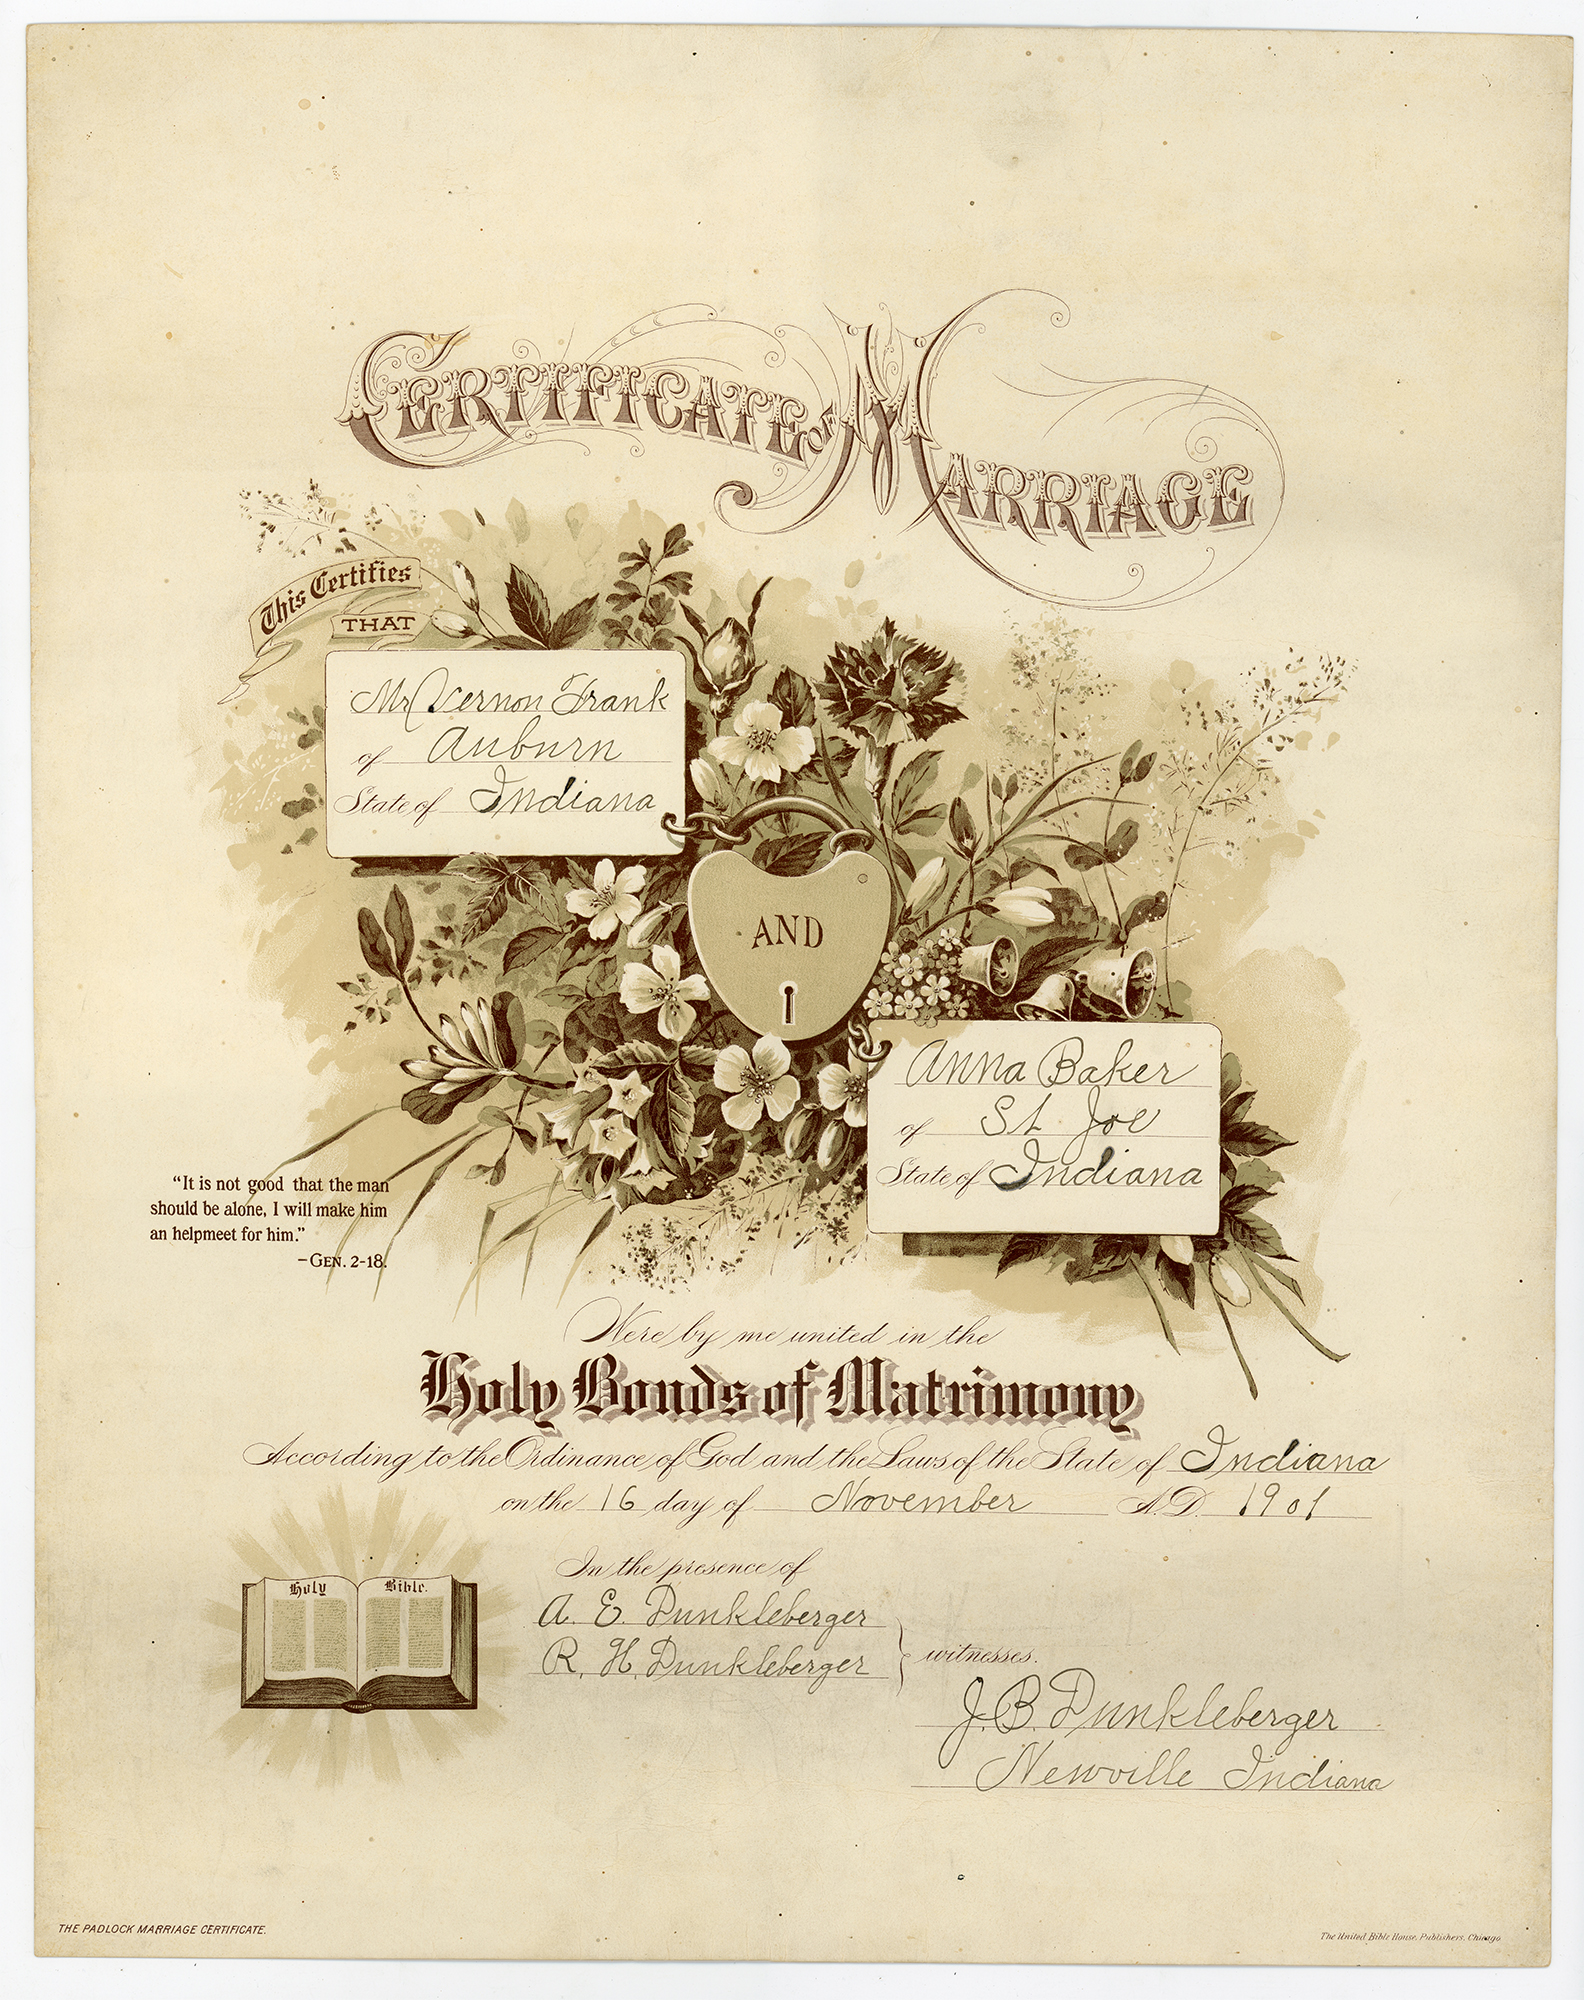 CERTIFICATE OF MARRIAGE
This Certifies
THAT
Mr Vernon Frank
of Auburn
State of Indiana
AND
Anna Baker
of St Joe
State of Indiana
"It is not good that the man
should be alone, I will make him
an helpmeet for him."
—GEN. 2-18.
Were by me united in the
Holy Bonds of Matrimony
According to the Ordinance of God and the Laws of the State of Indiana
on the 16 day of November A.D. 1901
Holy Bible.
In the presence of
A. E. Dunkleberger
R. H. Dunkleberger
witnesses.
J. B. Dunkleberger
Newville Indiana
THE PADLOCK MARRIAGE CERTIFICATE.
The United Bible House, Publishers, Chicago